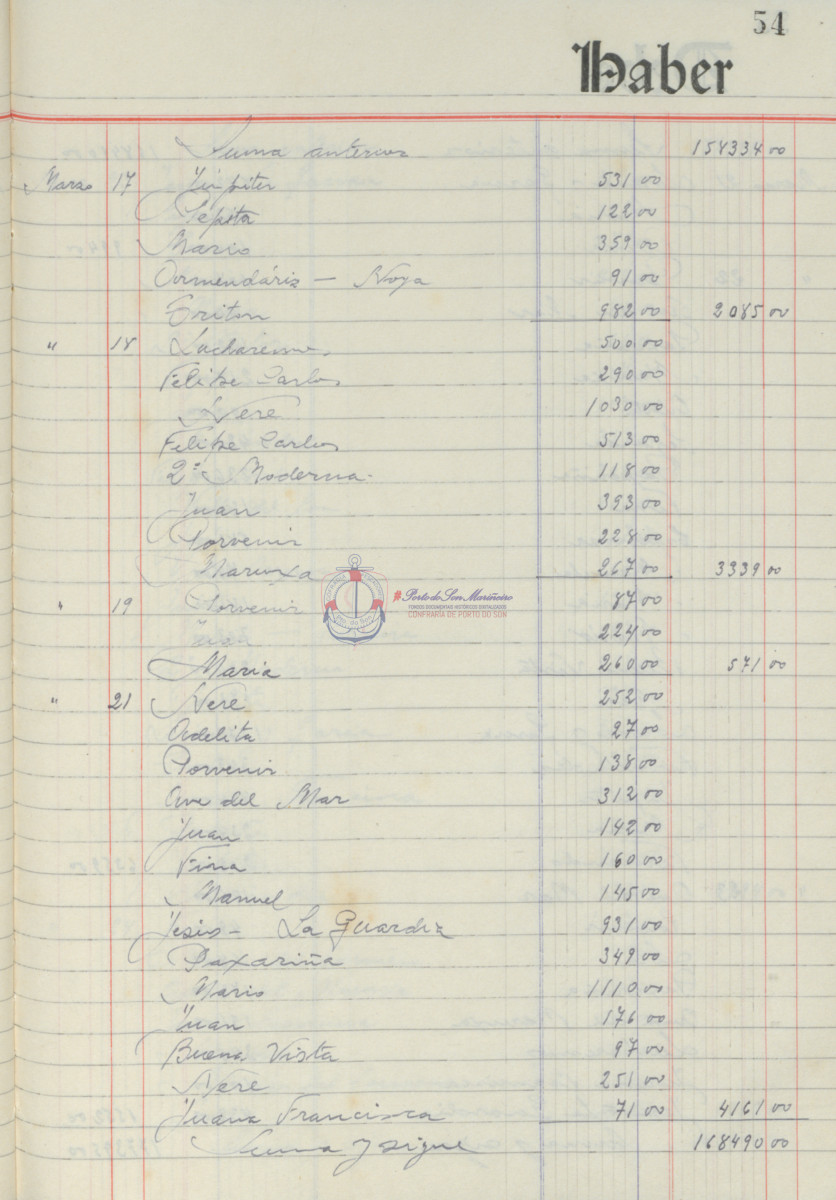 54
Haber
Suma anterior 158334 00
Marzo 17 Júpiter 531 00
Pepita 122 00
Mario 359 00
Armendáriz — Noya 91 00
Triton 982 00 2085 00
" 18 Lucharemos 500 00
Felipe Carlos 290 00
Nere 1030 00
Felipe Carlos 513 00
2ª Moderna 118 00
Juan 393 00
Porvenir 228 00
Maruxa 267 00 3339 00
" 19 Porvenir 87 00
Juan 224 00
Maria 260 00 571 00
" 21 Nere 252 00
Adelita 27 00
Porvenir 138 00
Ave del Mar 312 00
Juan 142 00
Fina 160 00
Manuel 145 00
Jesús - La Guardia 931 00
Paxariña 349 00
Mario 1110 00
Juan 176 00
Buena Vista 97 00
Nere 251 00
Juana Francisca 71 00 4161 00
Suma y sigue 168490 00
#Porto do Son Mariñeiro
FONDOS DOCUMENTAIS HISTÓRICOS DIXITALIZADOS
CONFRARÍA DE PORTO DO SON